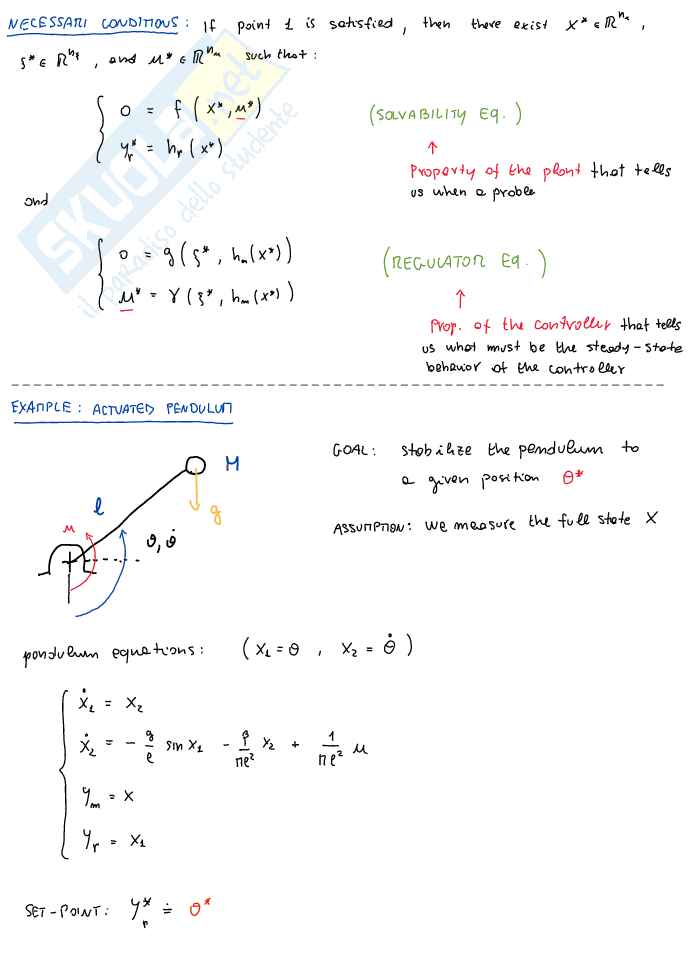 NECESSARI CONDITIONS: If point 1 is satisfied, then there exist x* ∈ ℝ^{n_x},
ξ* ∈ ℝ^{n_ξ}, and u* ∈ ℝ^{n_u} such that:
0 = f(x*, u*)
(SOLVABILITY EQ.)
y_r* = h_r(x*)
↑
Property of the plant that tells
us when a proble
and
0 = g(ξ*, h_m(x*))
(REGULATOR EQ.)
u* = γ(ξ*, h_m(x*))
↑
Prop. of the controller that tells
us what must be the steady-state
behavior of the controller
EXAMPLE: ACTUATED PENDULUM
GOAL: stabilize the pendulum to
a given position θ*
ASSUMPTION: we measure the full state x
M
l
g
u
θ, θ̇
pendulum equations: (x₁ = θ, x₂ = θ̇)
ẋ₁ = x₂
ẋ₂ = - g/l sin x₁ - β/Ml² x₂ + 1/Ml² u
y_m = x
y_r = x₁
SET-POINT: y_r* ≐ θ*
SKUOLA.net
il paradiso dello studente